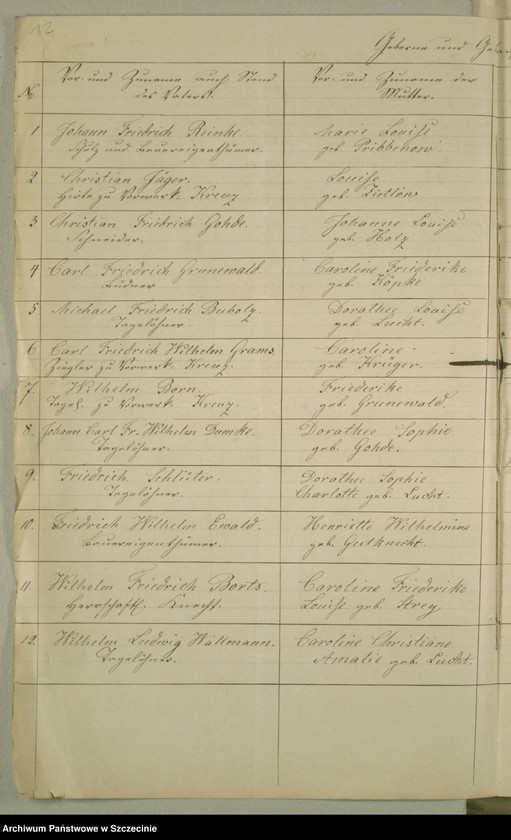 12
Geborne und
No
Vor- und Zuname auch Stand
des Vaters.
Vor- und Zuname der
Mutter.
1
Johann Friedrich Reinke.
Schulz und Bauereigenthümer.
Marie Louise
geb. Pribbenow.
2
Christian Jäger.
Hirte zu Vorwerk Kreuz
Louise
geb.
3.
Christian Friedrich Gohde.
Schneider.
Johanne Louise
geb. Holz
4
Carl Friedrich Grunewald.
Büdner
Caroline Friederike
geb. Köpke
5
Michael Friedrich Bubolz.
Tagelöhner
Dorothee Louise
geb. Lucht.
6
Carl Friedrich Wilhelm Grams.
Ziegler zu Vorwerk Kreuz.
Caroline
geb. Krüger.
7.
Wilhelm Born.
Tagel. zu Vorwerk Kreuz.
Friederike
geb. Grunewald.
8.
Johann Carl Fr. Wilhelm Damke.
Tagelöhner.
Dorothee Sophie
geb. Gohde.
9.
Friedrich Schlüter.
Tagelöhner.
Dorothee Sophie
Charlotte geb. Lucht.
10.
Friedrich Wilhelm Ewald.
Bauereigenthümer.
Henriette Wilhelmine
geb. Gutknecht.
11.
Wilhelm Friedrich Borts.
Herrschaftl. Knecht.
Caroline Friederike
Louise geb. Strey
12.
Wilhelm Ludwig Wallmann.
Tagelöhner.
Caroline Christiane
Amalie geb. Lucht.
Archiwum Państwowe w Szczecinie